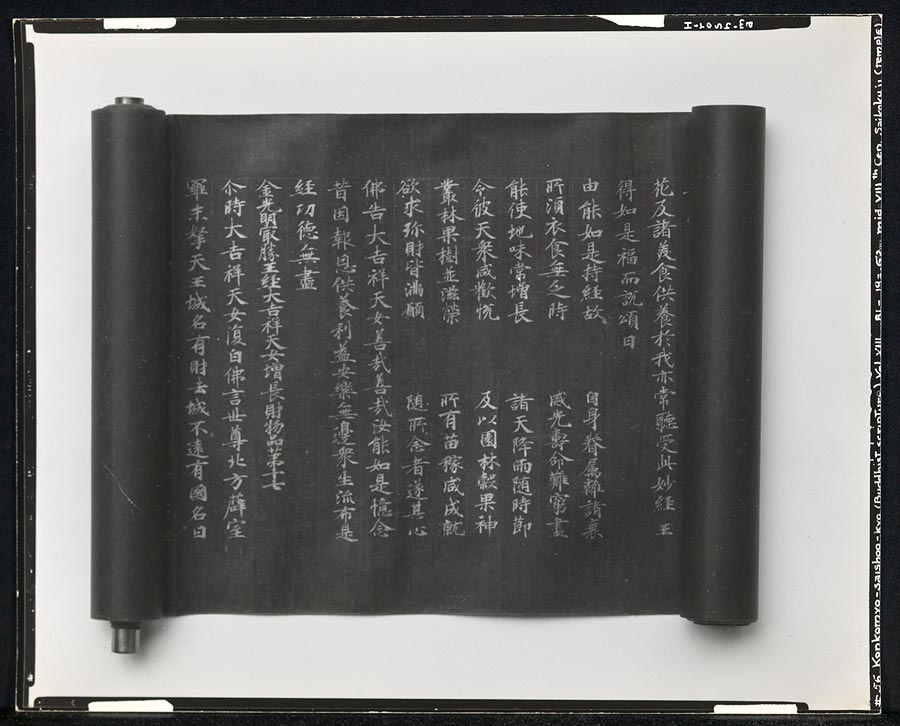 花及諸美食供養於我亦常聽受此妙經王
得如是福而説頌曰
由能如是持經故 自身眷属離諸衰
所湏衣食無乏時 威光壽命難窮盡
能使地味常增長 諸天降雨随時節
令彼天衆咸歡恱 及以園林穀果神
叢林果樹並滋榮 所有苗稼咸成就
欲求珎財皆滿願 随所念者遂其心
佛告大吉祥天女善哉善哉汝能如是憶念
昔因報恩供養利益安樂無邊衆生流布是
經功德無盡
金光明冣勝王經大吉祥天女增長財物品第十七
尒時大吉祥天女復白佛言世尊北方薜室
羅末拏天王城名有財去城不遠有國名曰
#56 Konkomyo-saishoo-kyo (Buddhist scripture) Vol VIII mid VIIIth Cen. Saikoku-ji (temple)